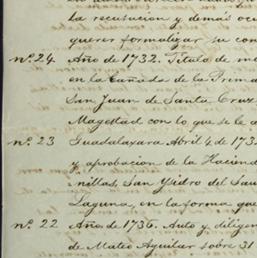 la recusacion y demas ocu
querer formalizar su con
nº. 24 Año de 1732. Titulo de me
en la Cañada de la Prima
San Juan de Santa Cruz
Magestad con lo que se a
nº. 23 Guadalaxara Abril 4 de 173
y aprobacion de la Haciend
nillas, San Ysidro del Sau
Laguna, en la forma que
nº. 22 Año de 1736. Auto y diligen
de Mateo Aguilar sobre 31